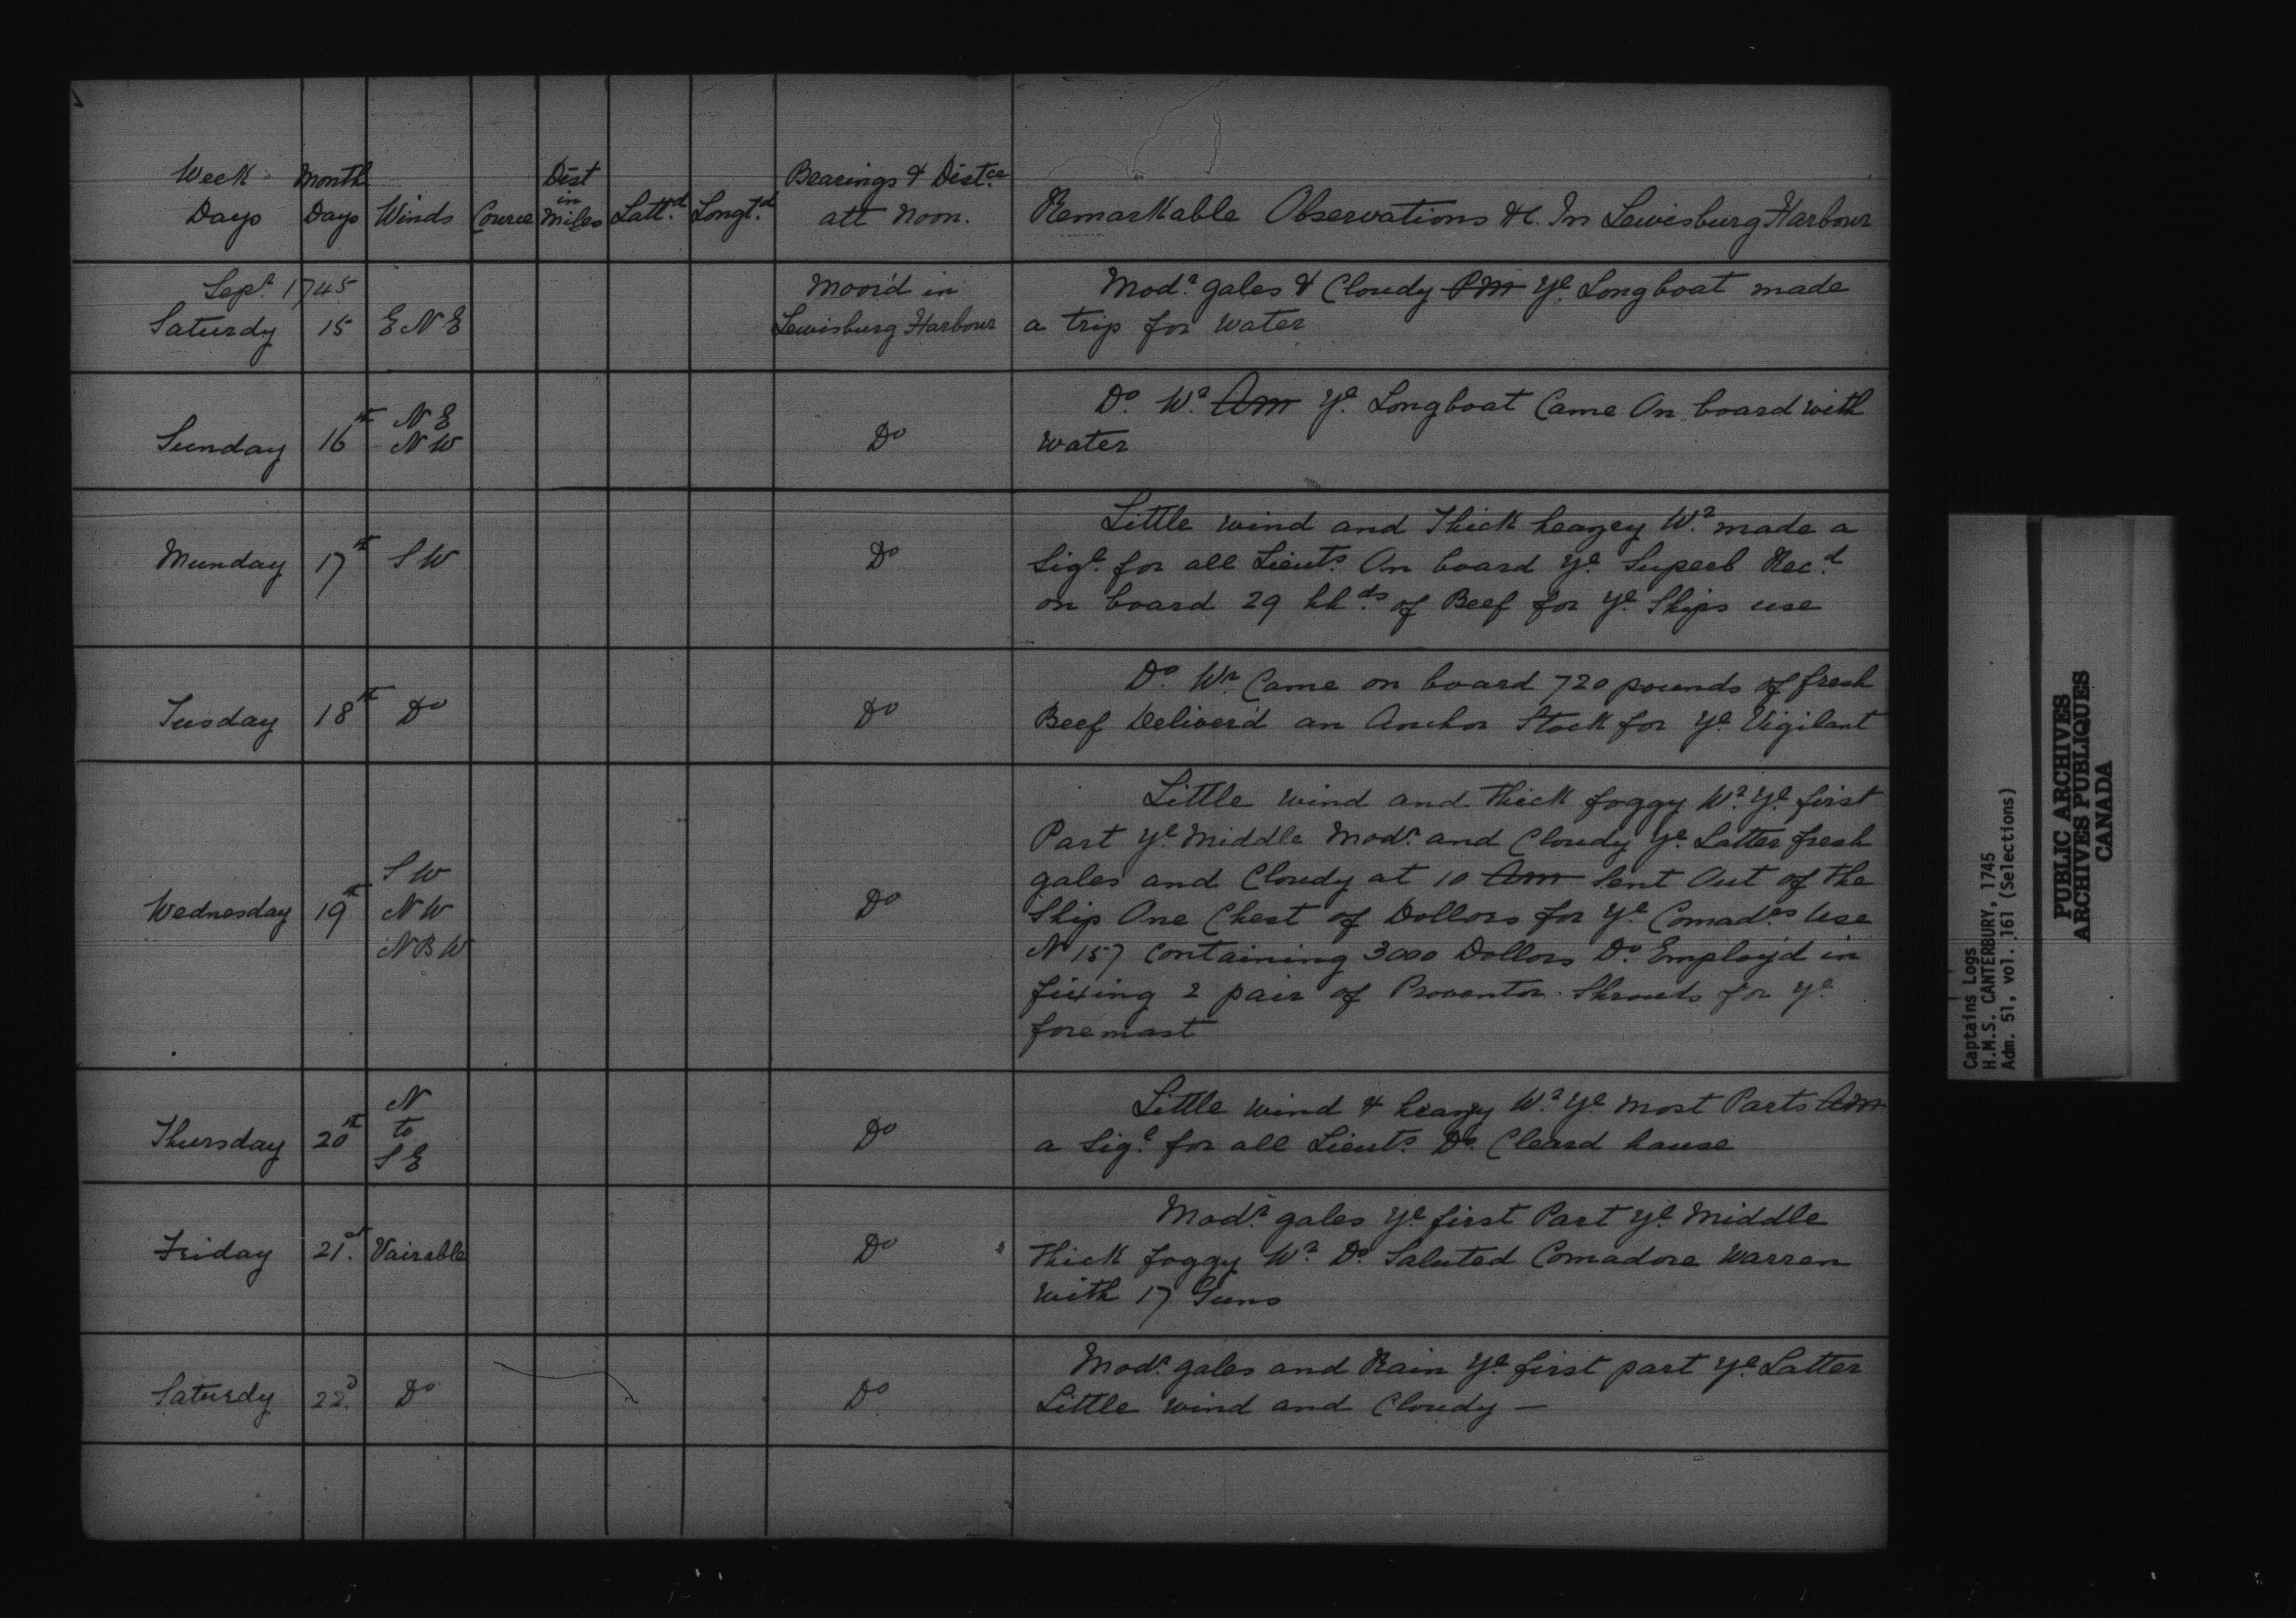 Week Days | Month Days | Winds | Cource | Dist in Miles | Latt.d | Longt.d | Bearings & Dist.ce att Noon. | Remarkable Observations &c. In Lewisburg Harbour
Sept. 1745
Saturdy | 15 | E N E | Moor'd in Lewisburg Harbour | Mod.r gales & Cloudy PM Ye Longboat made
a trip for water
Sunday | 16th | N E N W | Do | Do. W.r Am Ye Longboat Came On board with
water
Munday | 17th | S W | Do | Little wind and Thick heazey W.r made a
Sigl. for all Lieuts. On board Ye Superb Rec.d
on board 29 hhds of Beef for Ye Ships use
Tusday | 18th | Do | Do | Do. Wr. Came on board 720 pounds of fresh
Beef Deliver'd an Anchor Stock for Ye Vigilant
Wednesday | 19th | S W N W N B W | Do | Little wind and thick foggy W.r Ye first
Part Ye Middle Modr. and Cloudy Ye Latter fresh
gales and Cloudy at 10 Am Sent Out of the
Ship One Chest of Dollors for Ye Comadrs Use
N 157 Containing 3000 Dollors Do. Employ'd in
fixing 2 pair of Proventor Shrouds for ye
foremast
Thursday | 20th | N to S E | Do | Little wind & heazy W.r Ye most Parts Am
a Sigl. for all Lieuts. Do. Cleard hause
Friday | 21st. | Vairable | Do | Modr. gales Ye first Part Ye Middle
Thick foggy W.r Do. Saluted Comadore Warren
with 17 Guns
Saturdy | 22d. | Do | Do | Modr. gales and Rain Ye first part Ye Latter
Little wind and Cloudy —
Captains Logs
H.M.S. CANTERBURY, 1745
Adm. 51, vol. 161 (Selections)
PUBLIC ARCHIVES
ARCHIVES PUBLIQUES
CANADA